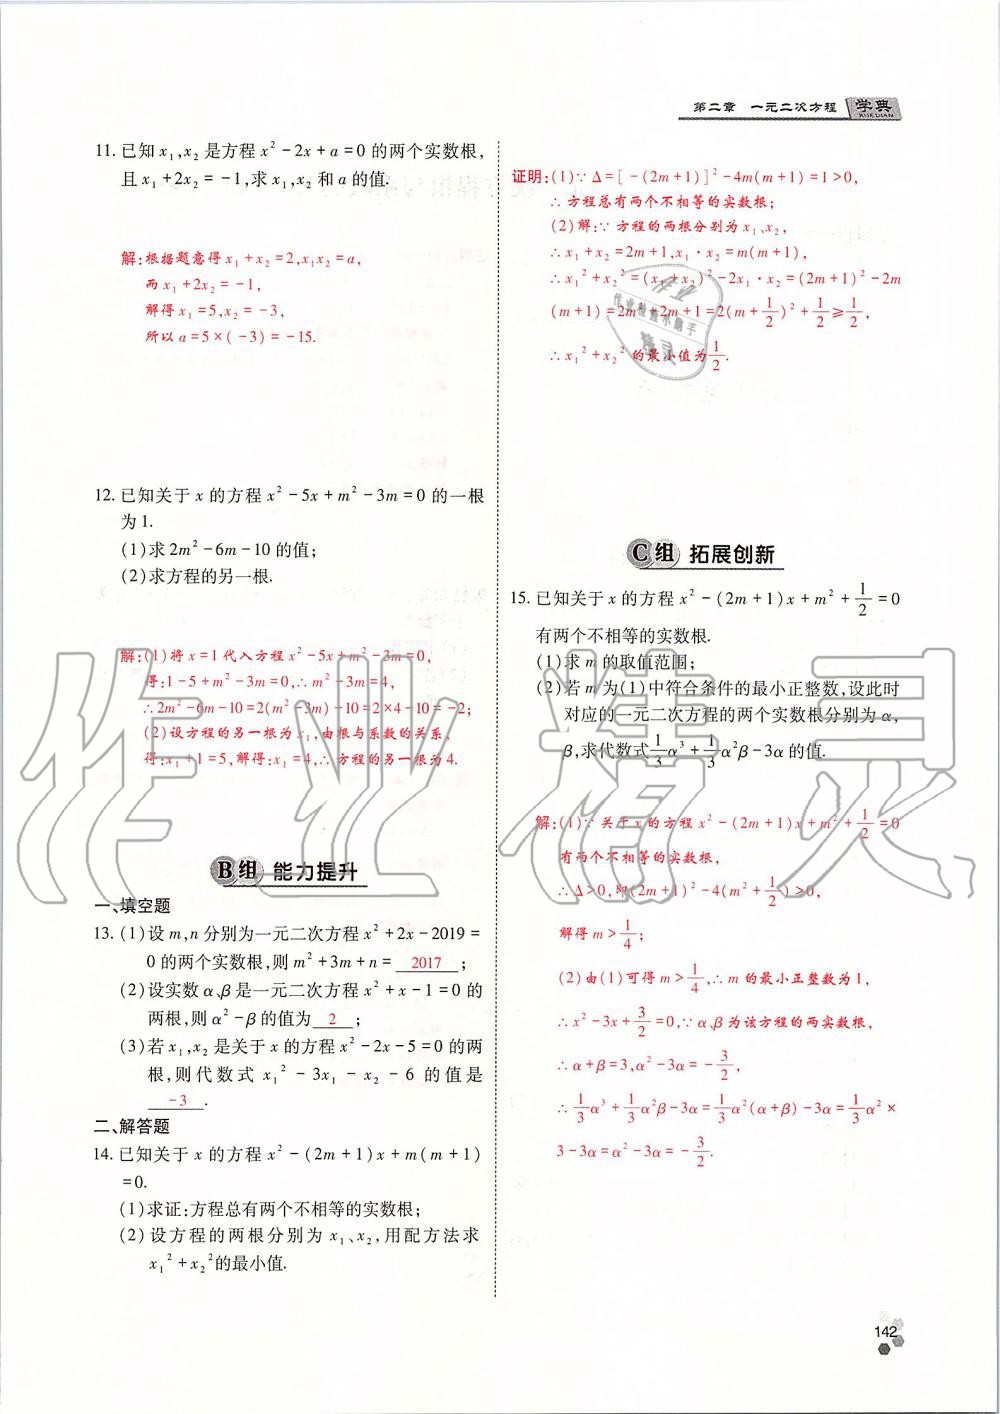 第二章 一元二次方程 学典
XUEDIAN
11. 已知 x₁,x₂ 是方程 x²-2x+a=0 的两个实数根,
且 x₁+2x₂=-1,求 x₁,x₂ 和 a 的值.
解:根据题意得 x₁+x₂=2,x₁x₂=a,
而 x₁+2x₂=-1,
解得 x₁=5,x₂=-3,
所以 a=5×(-3)=-15.
12. 已知关于 x 的方程 x²-5x+m²-3m=0 的一根
为 1.
(1)求 2m²-6m-10 的值;
(2)求方程的另一根.
解:(1)将 x=1 代入方程 x²-5x+m²-3m=0,
得:1-5+m²-3m=0,∴m²-3m=4,
∴2m²-6m-10=2(m²-3m)-10=2×4-10=-2;
(2)设方程的另一根为 x₁,由根与系数的关系,
得:x₁+1=5,解得:x₁=4,∴方程的另一根为 4.
B组 能力提升
一、填空题
13. (1)设 m,n 分别为一元二次方程 x²+2x-2019=
0 的两个实数根,则 m²+3m+n= 2017 ;
(2)设实数 α、β 是一元二次方程 x²+x-1=0 的
两根,则 α²-β 的值为 2 ;
(3)若 x₁,x₂ 是关于 x 的方程 x²-2x-5=0 的两
根,则代数式 x₁²-3x₁-x₂-6 的值是
-3 .
二、解答题
14. 已知关于 x 的方程 x²-(2m+1)x+m(m+1)
=0.
(1)求证:方程总有两个不相等的实数根;
(2)设方程的两根分别为 x₁、x₂,用配方法求
x₁²+x₂²的最小值.
证明:(1)∵Δ=[-(2m+1)]²-4m(m+1)=1>0,
∴方程总有两个不相等的实数根;
(2)解:∵方程的两根分别为 x₁、x₂,
∴x₁+x₂=2m+1,x₁·x₂=m(m+1),
∴x₁²+x₂²=(x₁+x₂)²-2x₁·x₂=(2m+1)²-2m
(m+1)=2m²+2m+1=2(m+1/2)²+1/2≥1/2,
∴x₁²+x₂² 的最小值为1/2.
C组 拓展创新
15. 已知关于 x 的方程 x²-(2m+1)x+m²+1/2=0
有两个不相等的实数根.
(1)求 m 的取值范围;
(2)若 m 为(1)中符合条件的最小正整数,设此时
对应的一元二次方程的两个实数根分别为 α,
β,求代数式1/3α³+1/3α²β-3α 的值.
解:(1)∵关于 x 的方程 x²-(2m+1)x+m²+1/2=0
有两个不相等的实数根,
∴Δ>0,即(2m+1)²-4(m²+1/2)>0,
解得 m>1/4;
(2)由(1)可得 m>1/4,∴m 的最小正整数为 1,
∴x²-3x+3/2=0,∵α、β 为该方程的两实数根,
∴α+β=3,α²-3α=-3/2,
∴1/3α³+1/3α²β-3α=1/3α²(α+β)-3α=1/3α²×
3-3α=α²-3α=-3/2.
作业精灵
作业
作业检查小助手
精灵
142